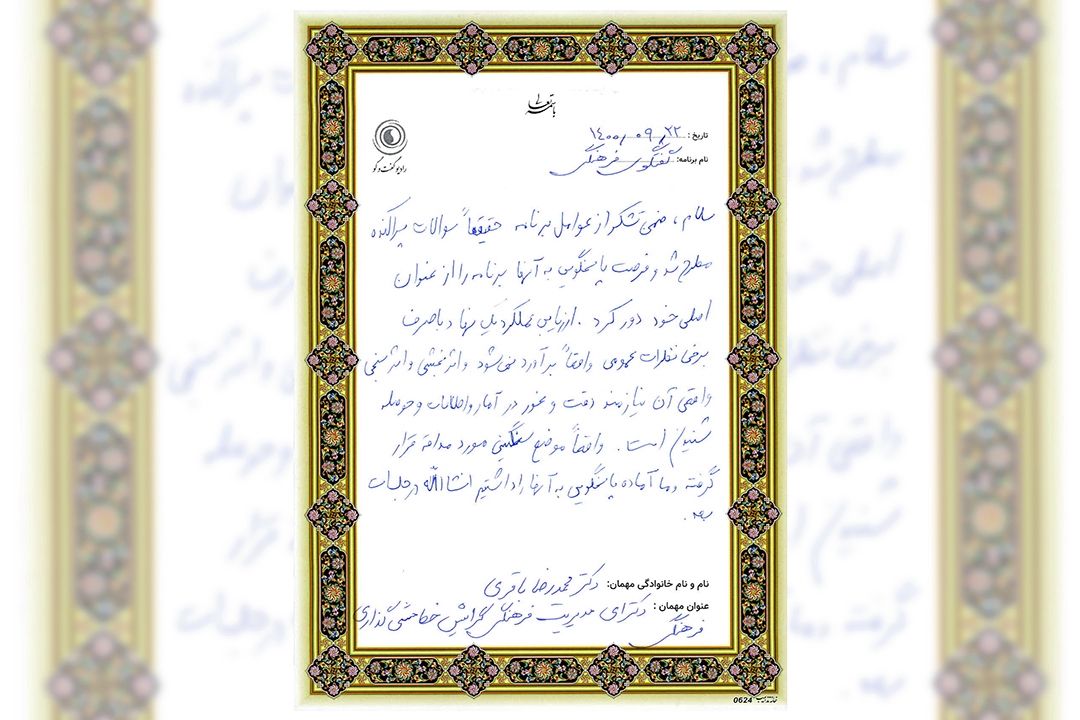 باسمه تعالی
رادیو گفت و گو
تاریخ: ۱۴۰۰٫۰۹٫۲۲
نام برنامه: گفتگوی فرهنگی
سلام، ضمن تشکر از عوامل برنامه حقیقتاً سوالات پراکنده
مطرح شد و فرصت پاسخگویی به آنها برنامه را از عنوان
اصلی خود دور کرد. ارزیابی عملکرد یک نهاد با صرف
برخی نظرات عمومی واقعاً برآورد نمی‌شود و اثربخشی و اثرسنجی
واقعی آن نیازمند دقت و غور در آمار و اطلاعات و حوصله
شنیدن است. واقعاً موضع سنگینی مورد مداقه قرار
گرفته و ما آماده پاسخگویی به آنها را داشتیم انشاالله در جلسات
بعد.
نام و نام خانوادگی مهمان: دکتر محمدرضا باقری
عنوان مهمان: دکترای مدیریت فرهنگی گرایش خط مشی گذاری
فرهنگی
0624